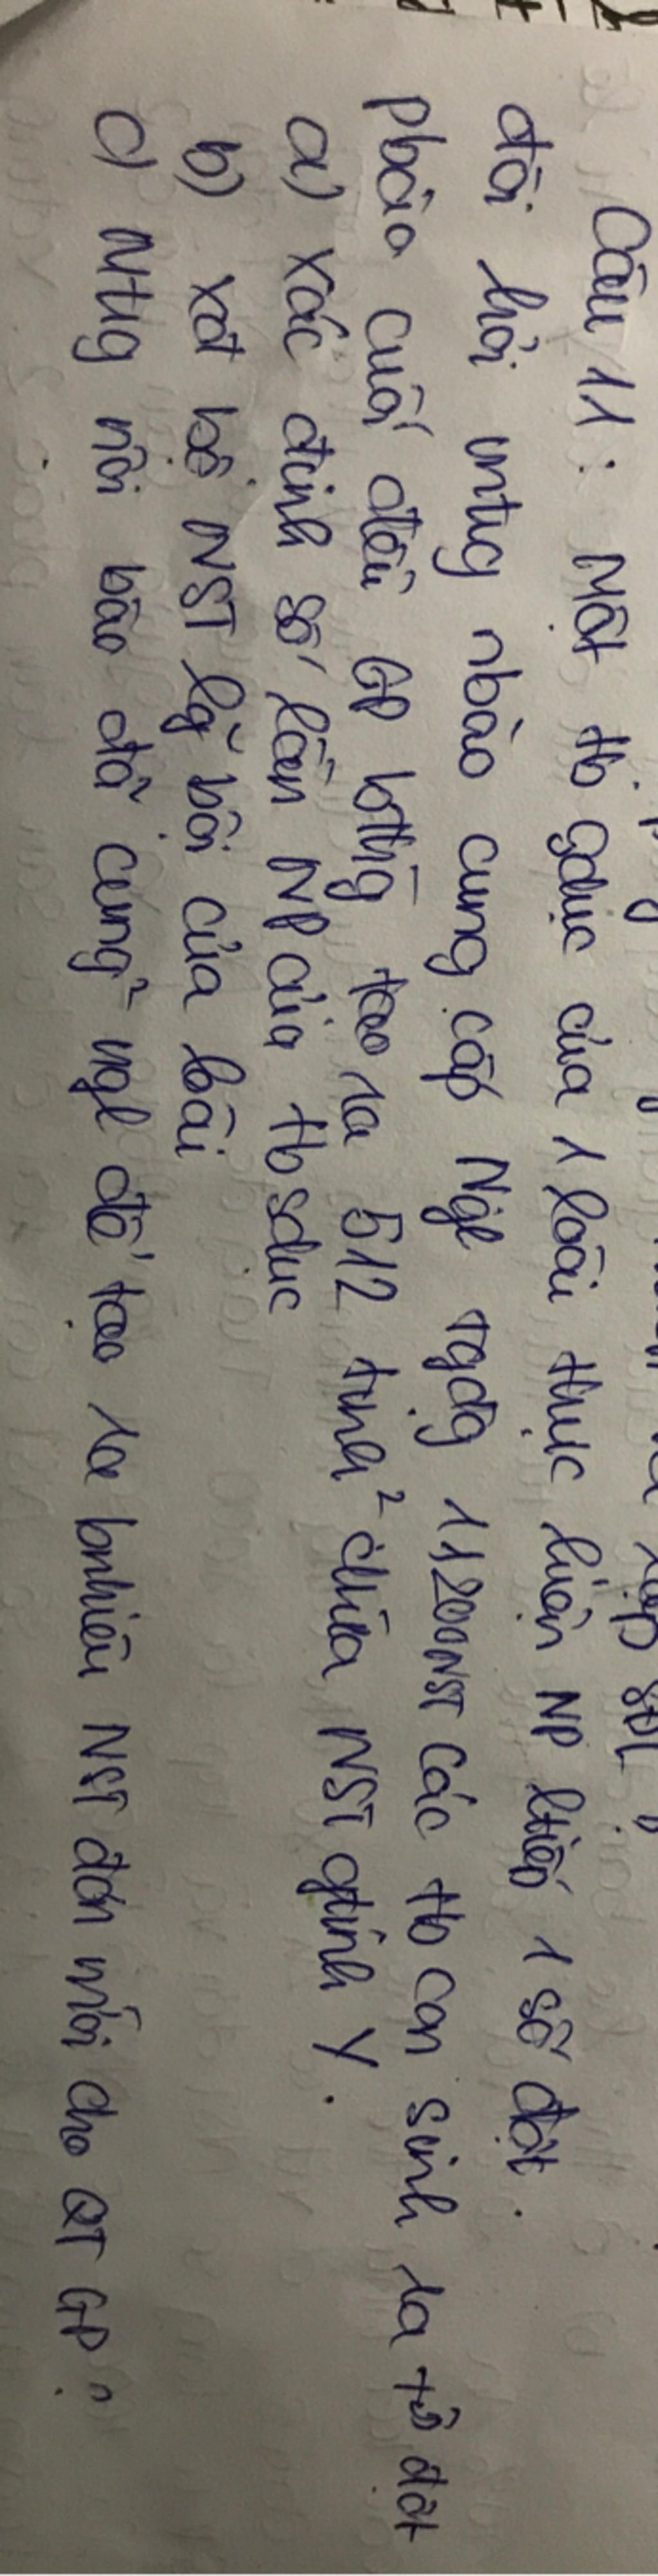 Câu 11: Một tb sdục của 1 loài thực hiện NP ltiếp 1 số đợt.
đòi hỏi mtrg nbào cung cấp Ngl tgđg 11200NST các tb con sinh ra từ đợt
pbào cuối đều GP bthg tạo ra 512 tinh ² chứa NST gtính Y.
a) xác định số lần NP của tb sdục
b) xđ bộ NST lg bội của loài
c) Mtrg nội bào đã cung² ngl để tạo ra bnhiêu NST đơn mới cho QT GP?